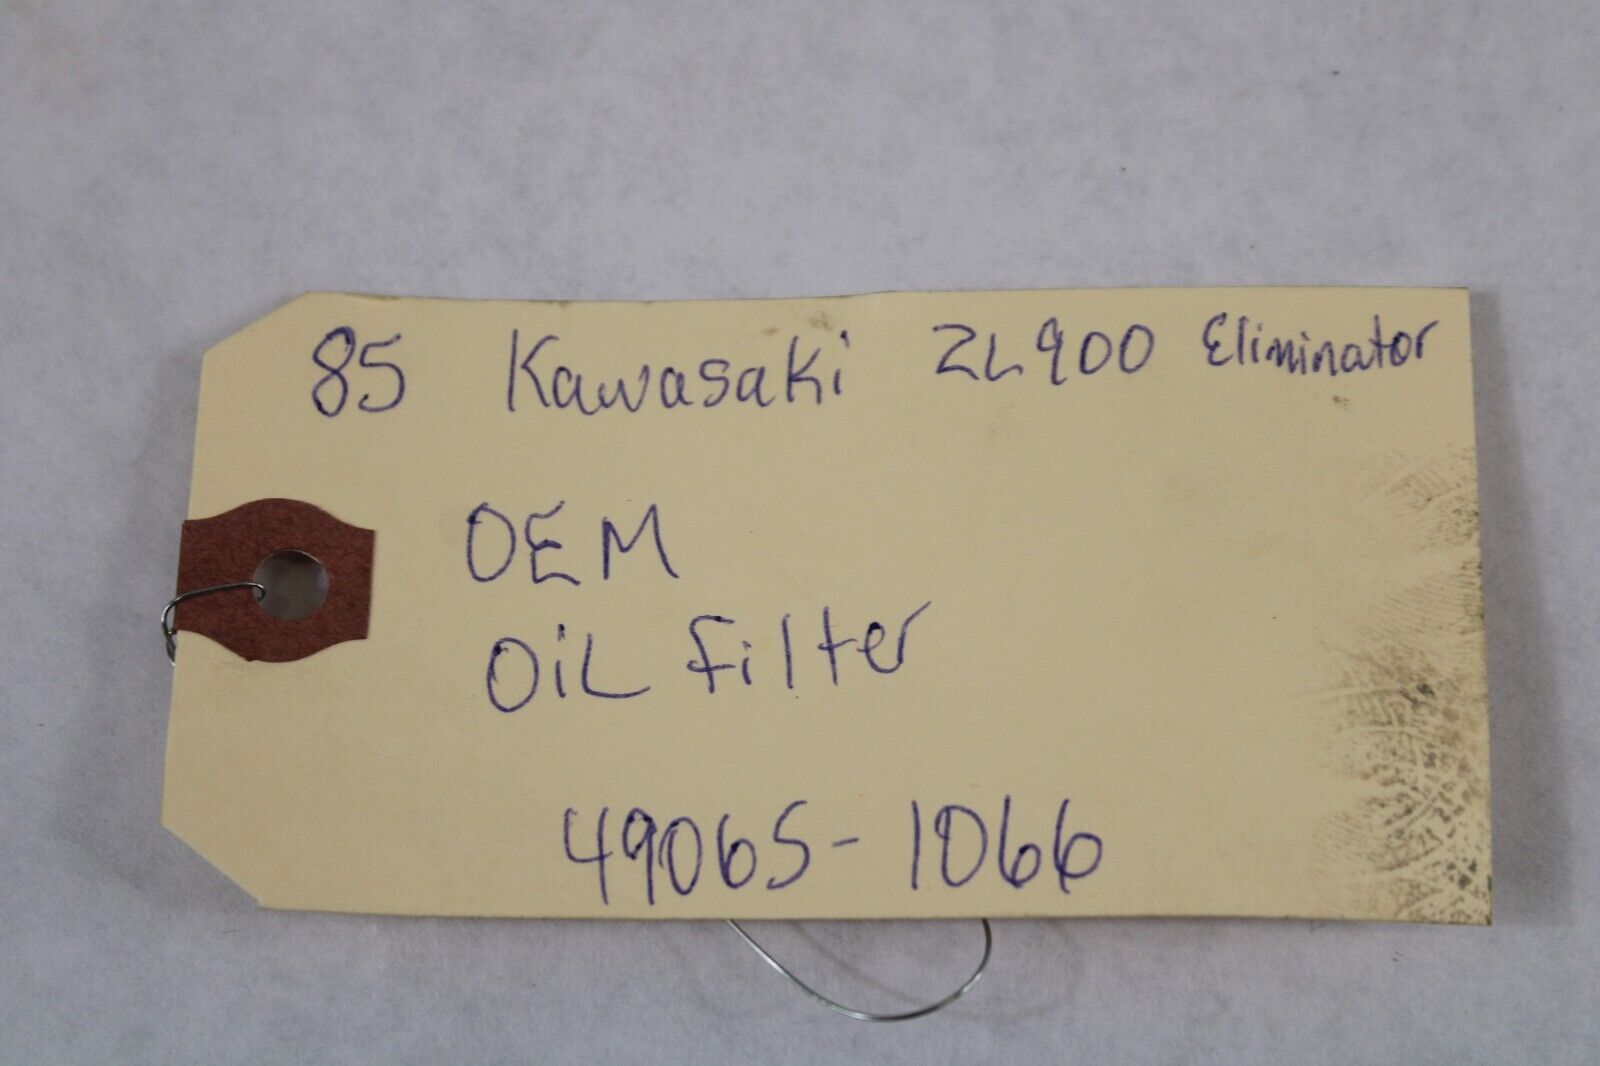 85 Kawasaki ZL900 Eliminator
OEM
OiL filter
49065-1066